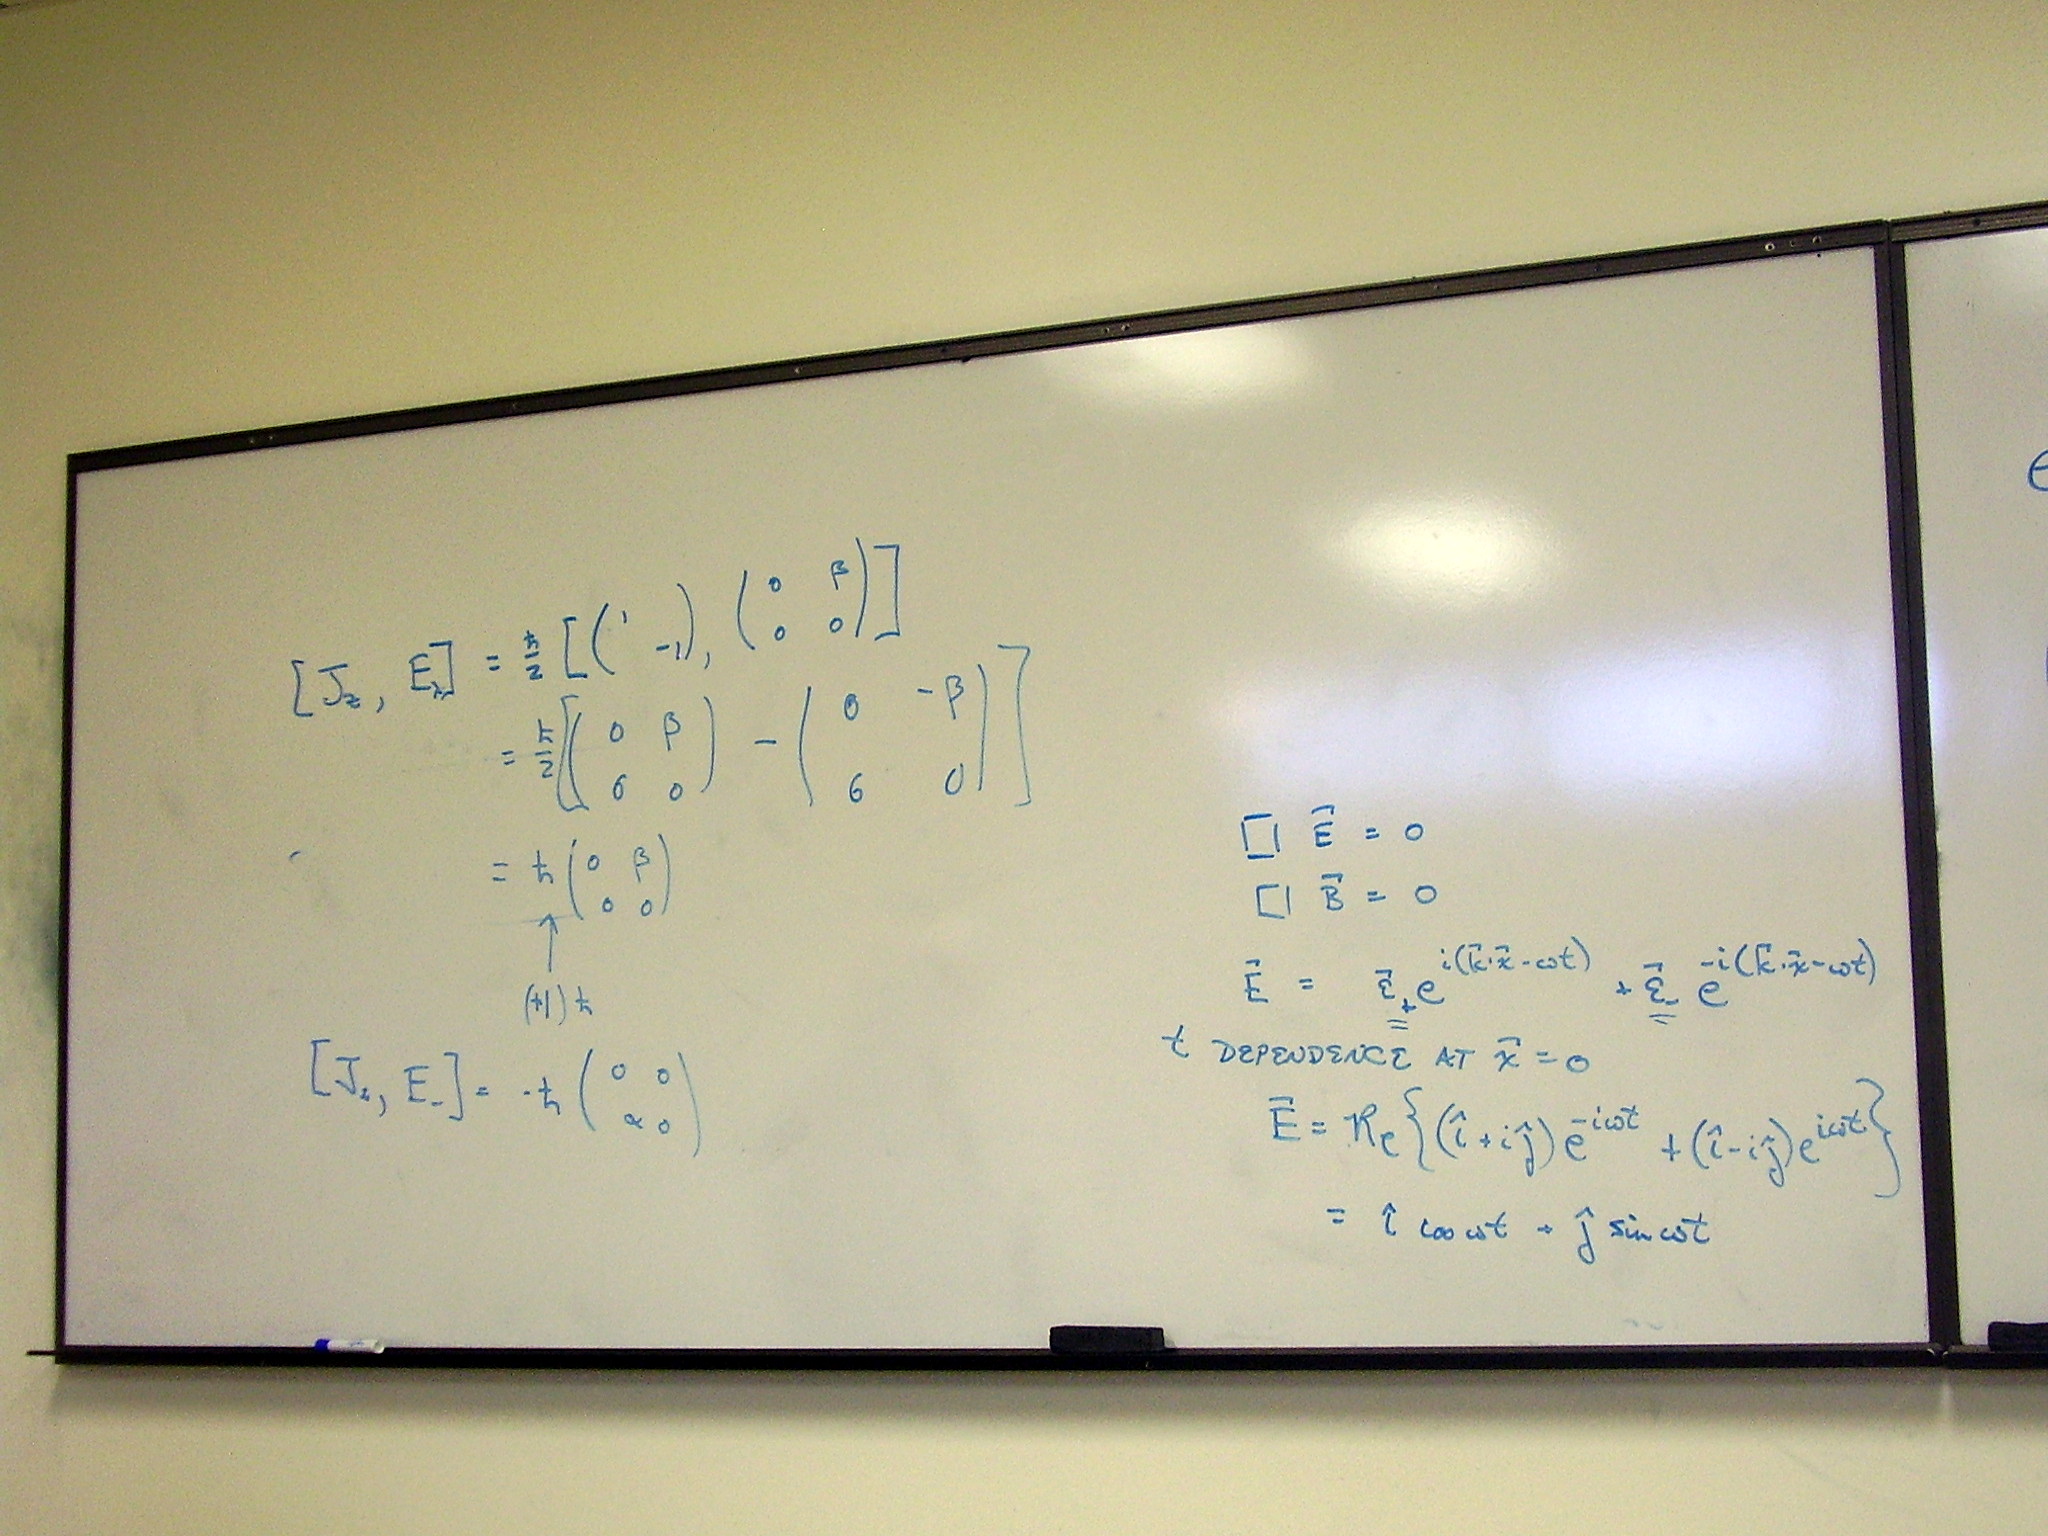 [J_z, E_+] = ħ/2 [(1 -1), (0 β 0 0)]
= ħ/2 [(0 β 0 0) - (0 -β 0 0)]
= ħ (0 β 0 0)
↑
(+1) ħ
[J_z, E_-] = -ħ (0 0 α 0)
□ E⃗ = 0
□ B⃗ = 0
E⃗ = ε⃗_+ e^{i(k⃗·x⃗-ωt)} + ε⃗_- e^{-i(k⃗·x⃗-ωt)}
t DEPENDENCE AT x⃗ = 0
E⃗ = Re{(î + iĵ) e^{-iωt} + (î - iĵ) e^{iωt}}
= î cos ωt + ĵ sin ωt